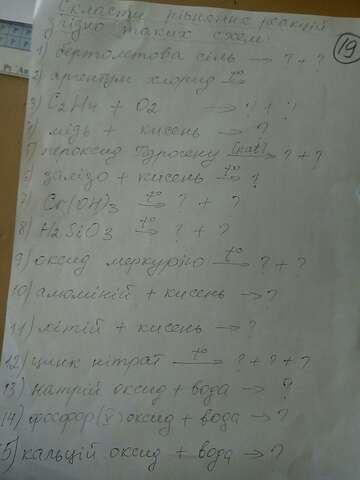 Скласти рівняння реакцій
згідно таких схем:
19
1) бертолетова сіль → ? + ?
2) аргентум хлорид t° →
3) C2H4 + O2 → ? + ?
4) мідь + кисень → ?
5) пероксид гідрогену [kat] → ? + ?
6) залізо + кисень t° → ?
7) Cr(OH)3 t° → ? + ?
8) H2SiO3 t° → ? + ?
9) оксид меркурію t° → ? + ?
10) алюміній + кисень → ?
11) літій + кисень → ?
12) цинк нітрат t° → ? + ? + ?
13) натрій оксид + вода → ?
14) фосфор (V) оксид + вода → ?
15) кальцій оксид + вода → ?